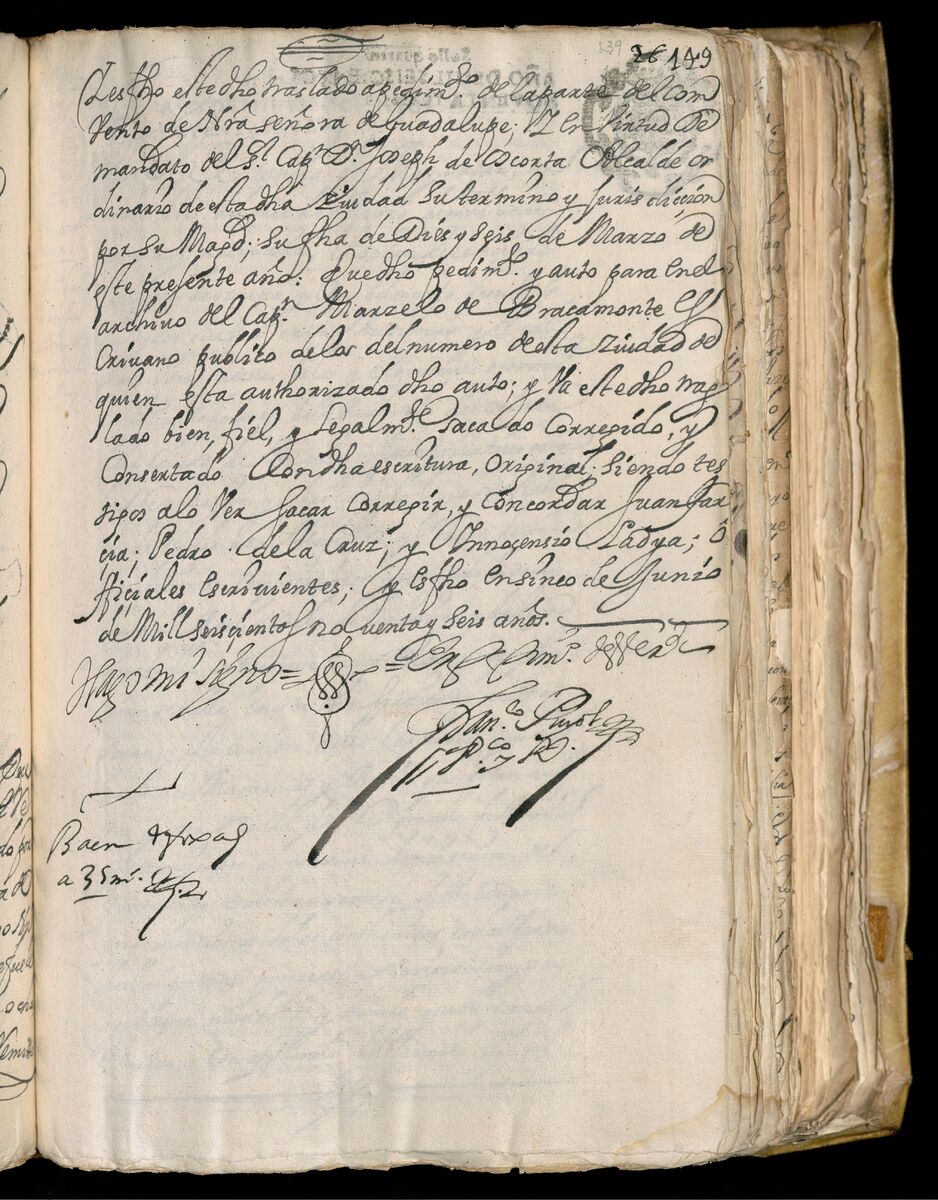 139 26 149
Y es fho este dho traslado a pedimto. de la parte del com
vento de Nrâ señora de Guadalupe; Y en Virtud de
mandato del Sr. Capn. Dn. Joseph de Acorta Alcalde or
dinario de esta dhâ Ziudad su termino y Jurisdicçión
por su Magd; su fha de Dies y seis de Marzo de
este presente año: Que dho pedimto. y auto para en el
archivo del Capn. Marzelo de Bracamonte es
crivano publico de los del numero de esta Ziudad de
quien esta authorizado dho auto; y Va este dho tras
lado bien, fiel, y Legalmte. sacado Corregido, y
Consertado Con dha escritura, original; siendo tes
tigos a lo Ver sacar Corregir, y Concordar Juan Gar
cia; Pedro de la Cruz; y Innoçensio Ladya; ô
ffiçiales escrivientes; y es fho en sinco de Junio
de Mill seisçientos noventa y seis años.
Hago mi signo = = En testimo. de Verd
Franco.